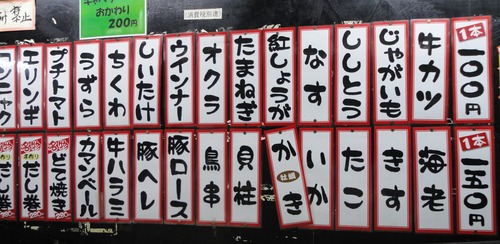 禁止
おかわり
200円
消費税別途
1本
一〇〇円
牛カツ
じゃがいも
ししとう
なす
紅しょうが
たまねぎ
オクラ
ウインナー
しいたけ
ちくわ
うずら
プチトマト
エリンギ
コンニャク
1本
一五〇円
海老
きす
たこ
いか
かき
牡蠣
貝柱
鳥串
豚ロース
豚ヘレ
牛ハラミ
カマンベール
どて焼き
だし巻
だし巻